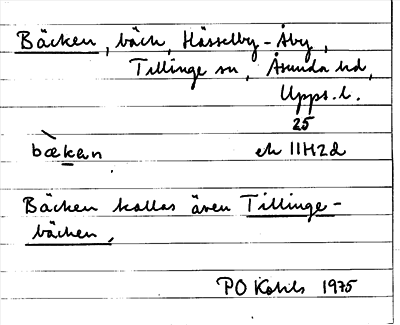 Bäcken, bäck, Hässelby-Åby,
Tillinge sn, Åsunda hd,
Upps. l.
25
bækan ek 11H2d
Bäcken kallas även Tillinge-
bäcken.
PO 1975